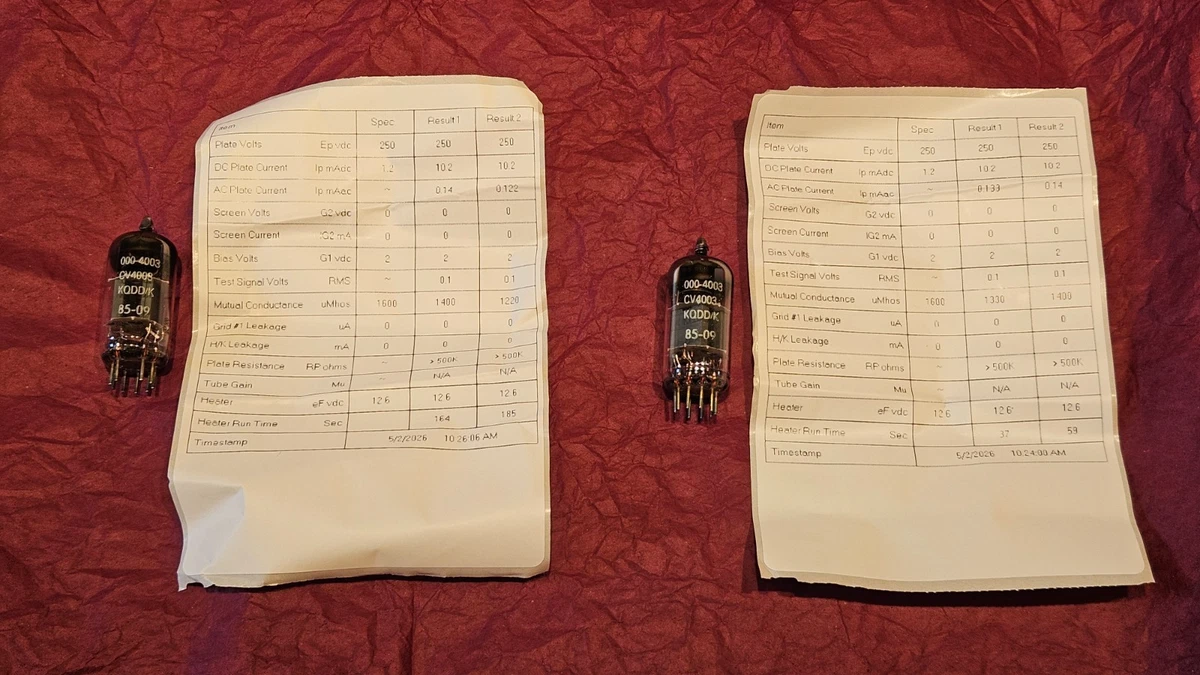 000-4003
CV4003
KQDD/K
85-09
Item Spec Result 1 Result 2
Plate Volts Ep vdc 250 250 250
DC Plate Current Ip mAdc 1.2 10.2 10.2
AC Plate Current Ip mAac ~ 0.14 0.122
Screen Volts G2 vdc 0 0 0
Screen Current IG2 mA 0 0 0
Bias Volts G1 vdc 2 2 2
Test Signal Volts RMS ~ 0.1 0.1
Mutual Conductance uMhos 1600 1400 1220
Grid #1 Leakage uA 0 0 0
H/K Leakage mA 0 0 0
Plate Resistance RP ohms ~ > 500K > 500K
Tube Gain Mu ~ N/A N/A
Heater eF vdc 12.6 12.6 12.6
Heater Run Time Sec 164 185
Timestamp 5/2/2026 10:26:06 AM
000-4003
CV4003
KQDD/K
85-09
Item Spec Result 1 Result 2
Plate Volts Ep vdc 250 250 250
DC Plate Current Ip mAdc 1.2 10.2 10.2
AC Plate Current Ip mAac ~ 0.133 0.14
Screen Volts G2 vdc 0 0 0
Screen Current IG2 mA 0 0 0
Bias Volts G1 vdc 2 2 2
Test Signal Volts RMS ~ 0.1 0.1
Mutual Conductance uMhos 1600 1330 1400
Grid #1 Leakage uA 0 0 0
H/K Leakage mA 0 0 0
Plate Resistance RP ohms ~ > 500K > 500K
Tube Gain Mu ~ N/A N/A
Heater eF vdc 12.6 12.6 12.6
Heater Run Time Sec 37 59
Timestamp 5/2/2026 10:24:00 AM